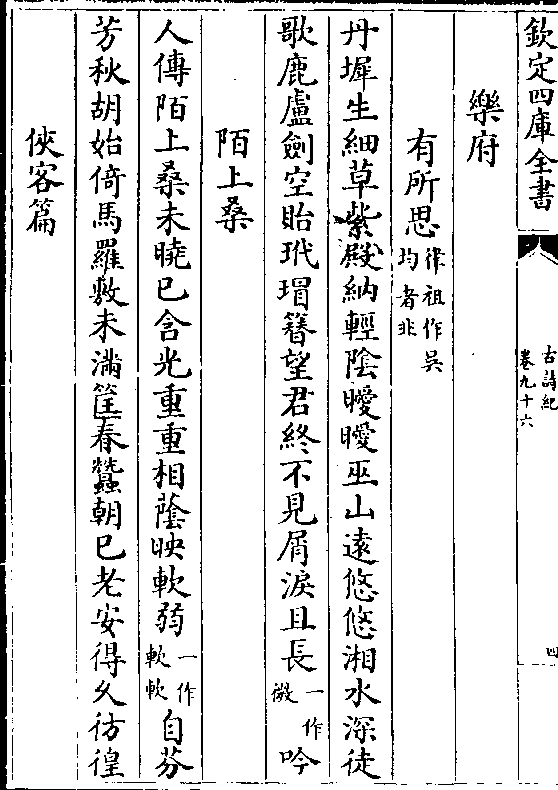 欽定四庫全書
古詩紀
卷九十六
四
樂府
有所思律祖作吳均者非
丹墀生細草紫殿納輕陰曖曖巫山遠悠悠湘水深徒
歌鹿盧劍空貽玳瑁簪望君終不見屑淚且長一作微吟
陌上桑
人傳陌上桑未曉已含光重重相蔭映軟弱一作軟軟自芬
芳秋胡始倚馬羅敷未滿筐春蠶朝已老安得久彷徨
俠客篇